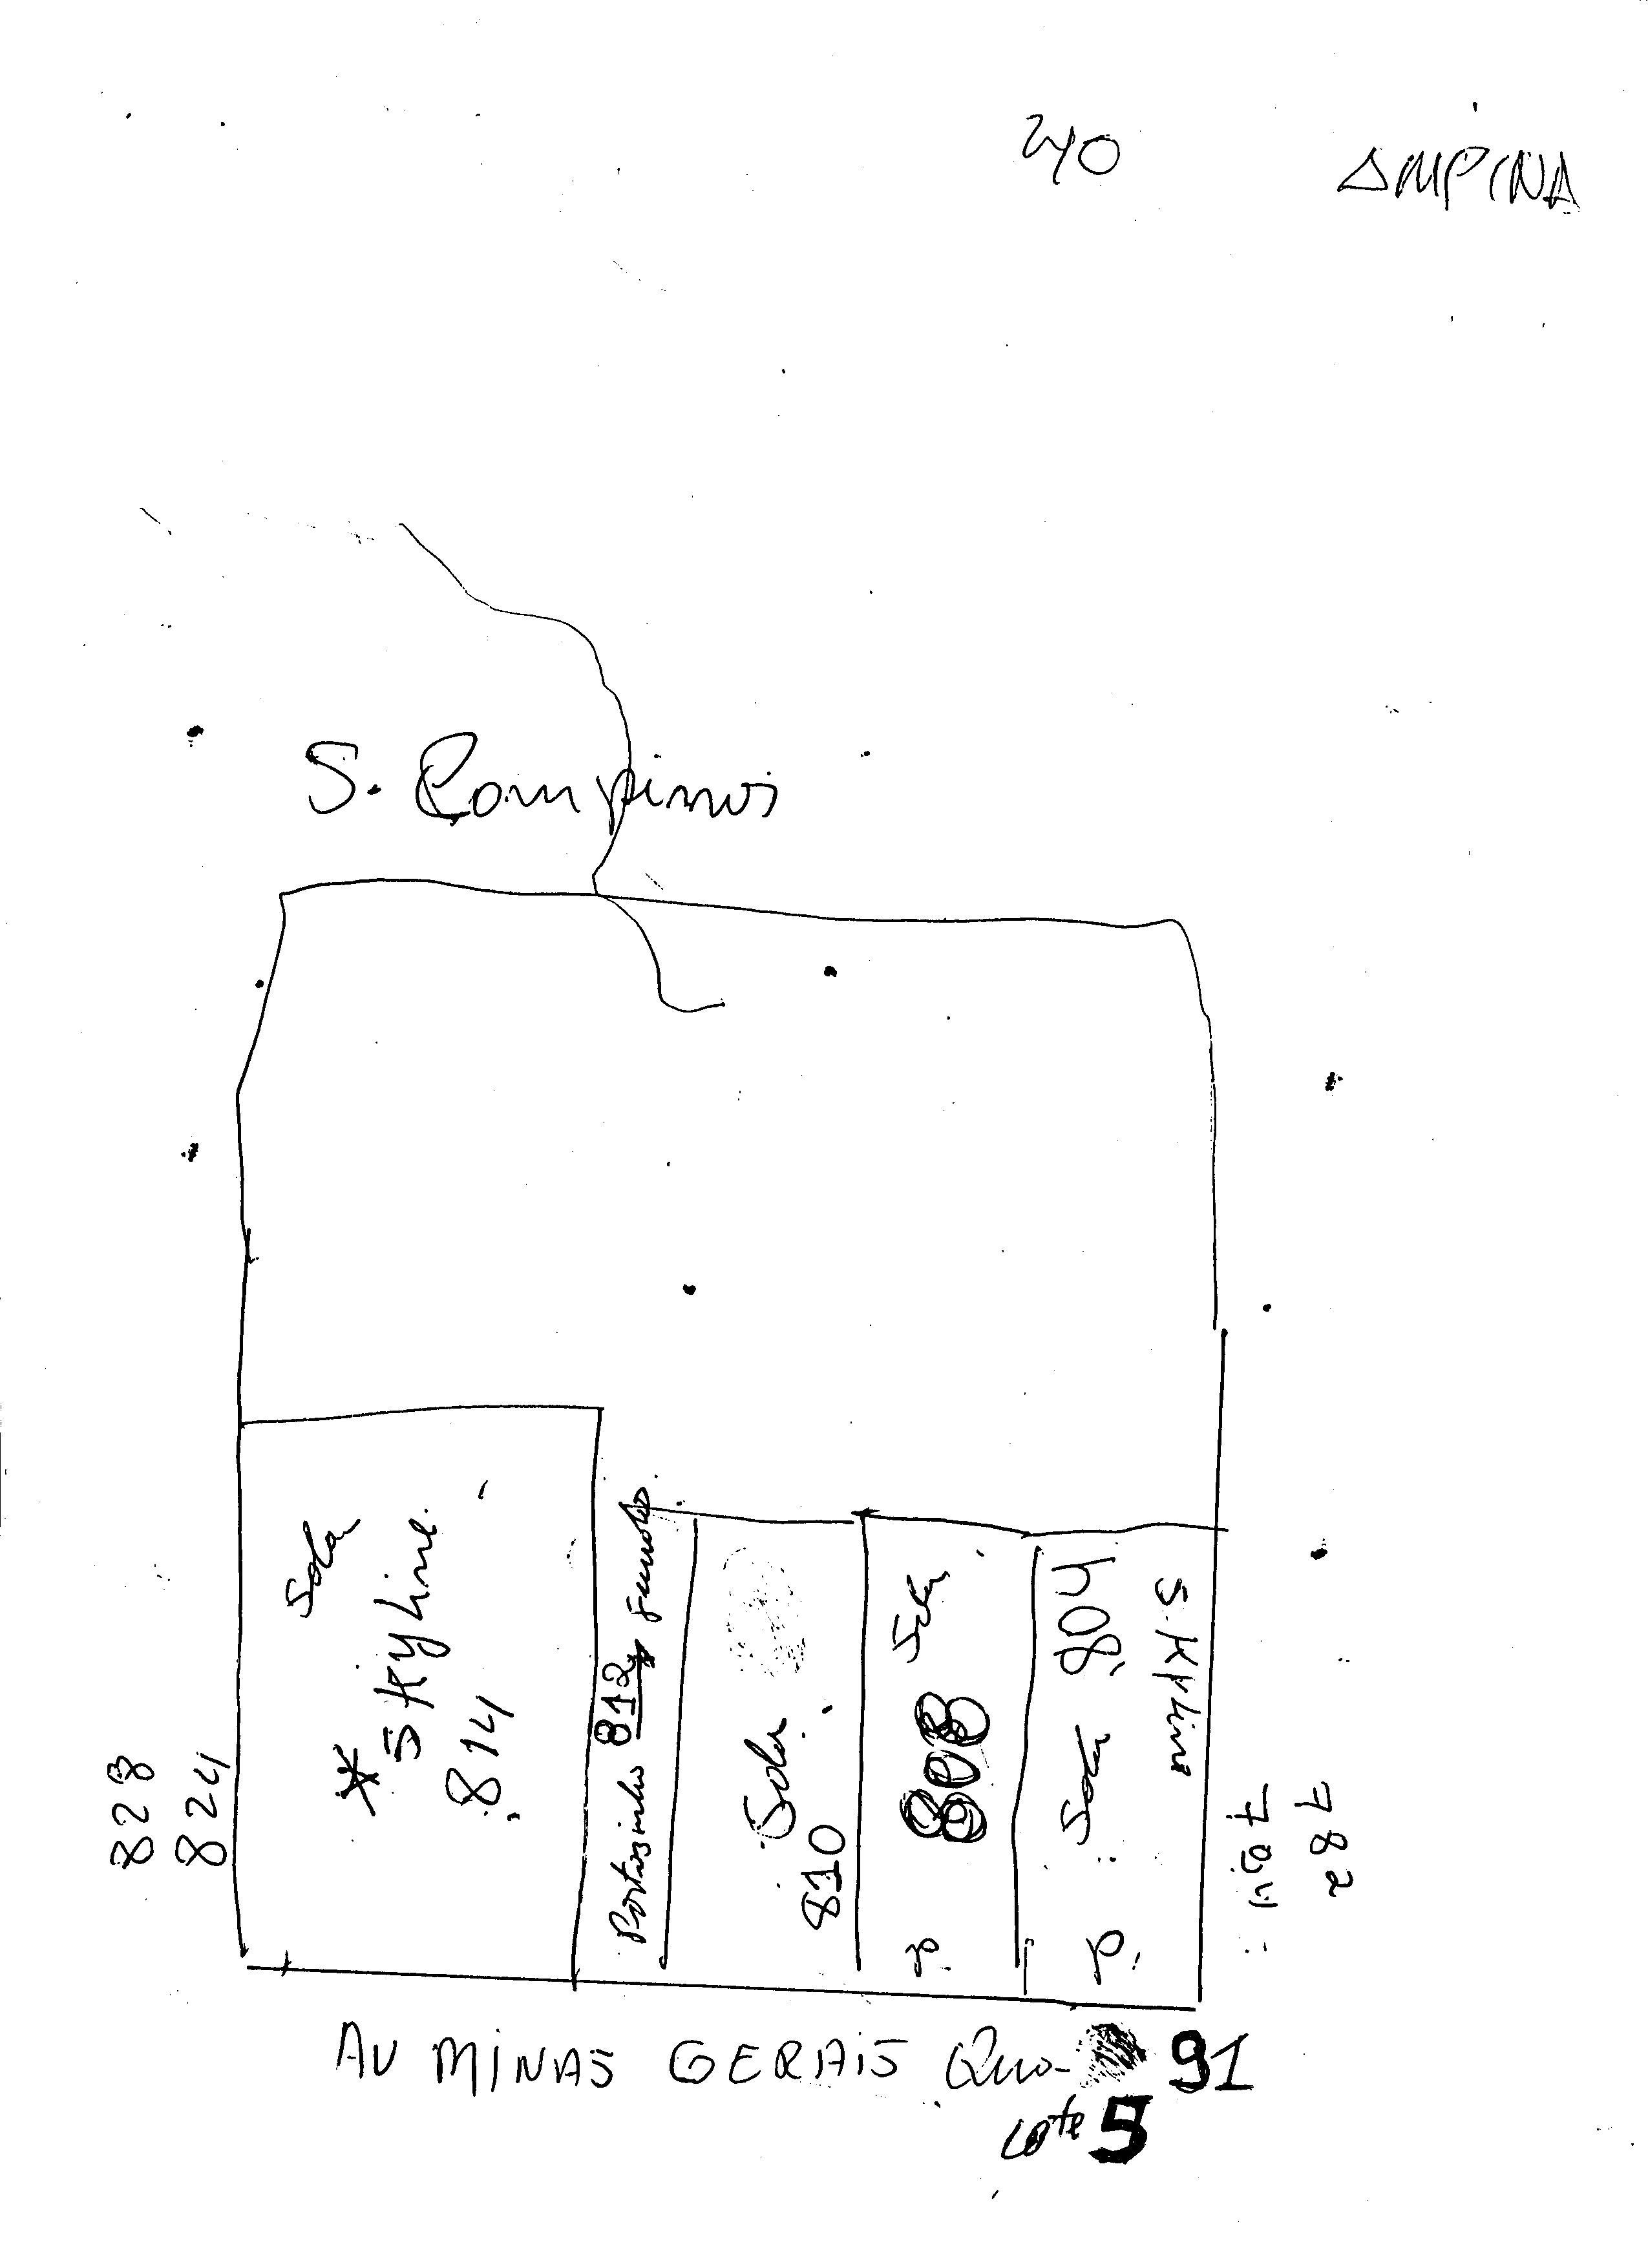 240
AMPINA
S. Campinas
Sala
* Skyline
814
828
824
Portozinho 812 Fundos
Sala
810
Sala
808
P.
804
Sala
P.
S.Kyline
784
782
AV MINAS GERAIS Qua- 91
Lote 5